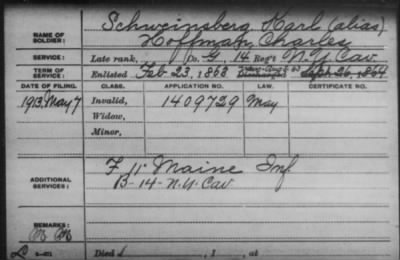 Schweinsberg Karl (alias)
NAME OF SOLDIER: Hoffman, Charles
SERVICE: Late rank, Co. G, 14 Reg't N.Y. Cav
TERM OF SERVICE: Enlisted Feb. 23, 1863 Discharged Sept. 26, 1864
DATE OF FILING. CLASS. APPLICATION NO. LAW. CERTIFICATE NO.
1913 May 7 Invalid, 1409729 May
Widow,
Minor,
ADDITIONAL SERVICES: F 11" Maine Inf
B-14-N.Y. Cav
REMARKS:
Died , 1 , at